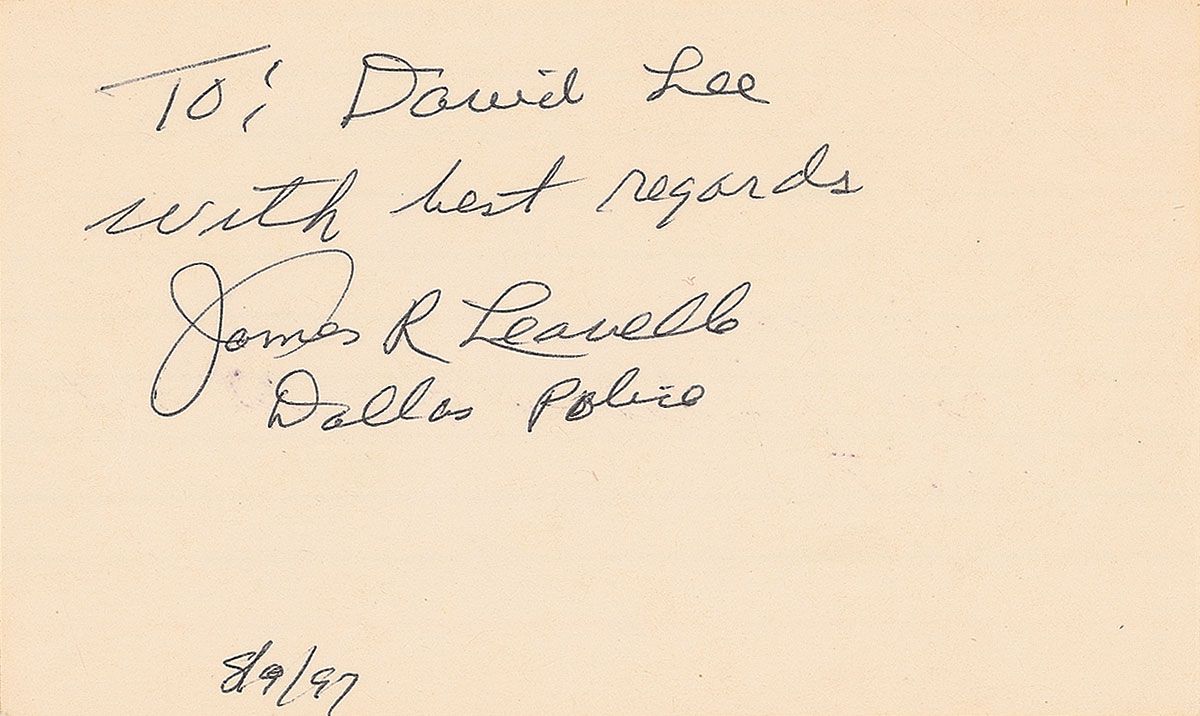 To: David Lee
with best regards
James R Leavelle
Dallas Police
8/9/97